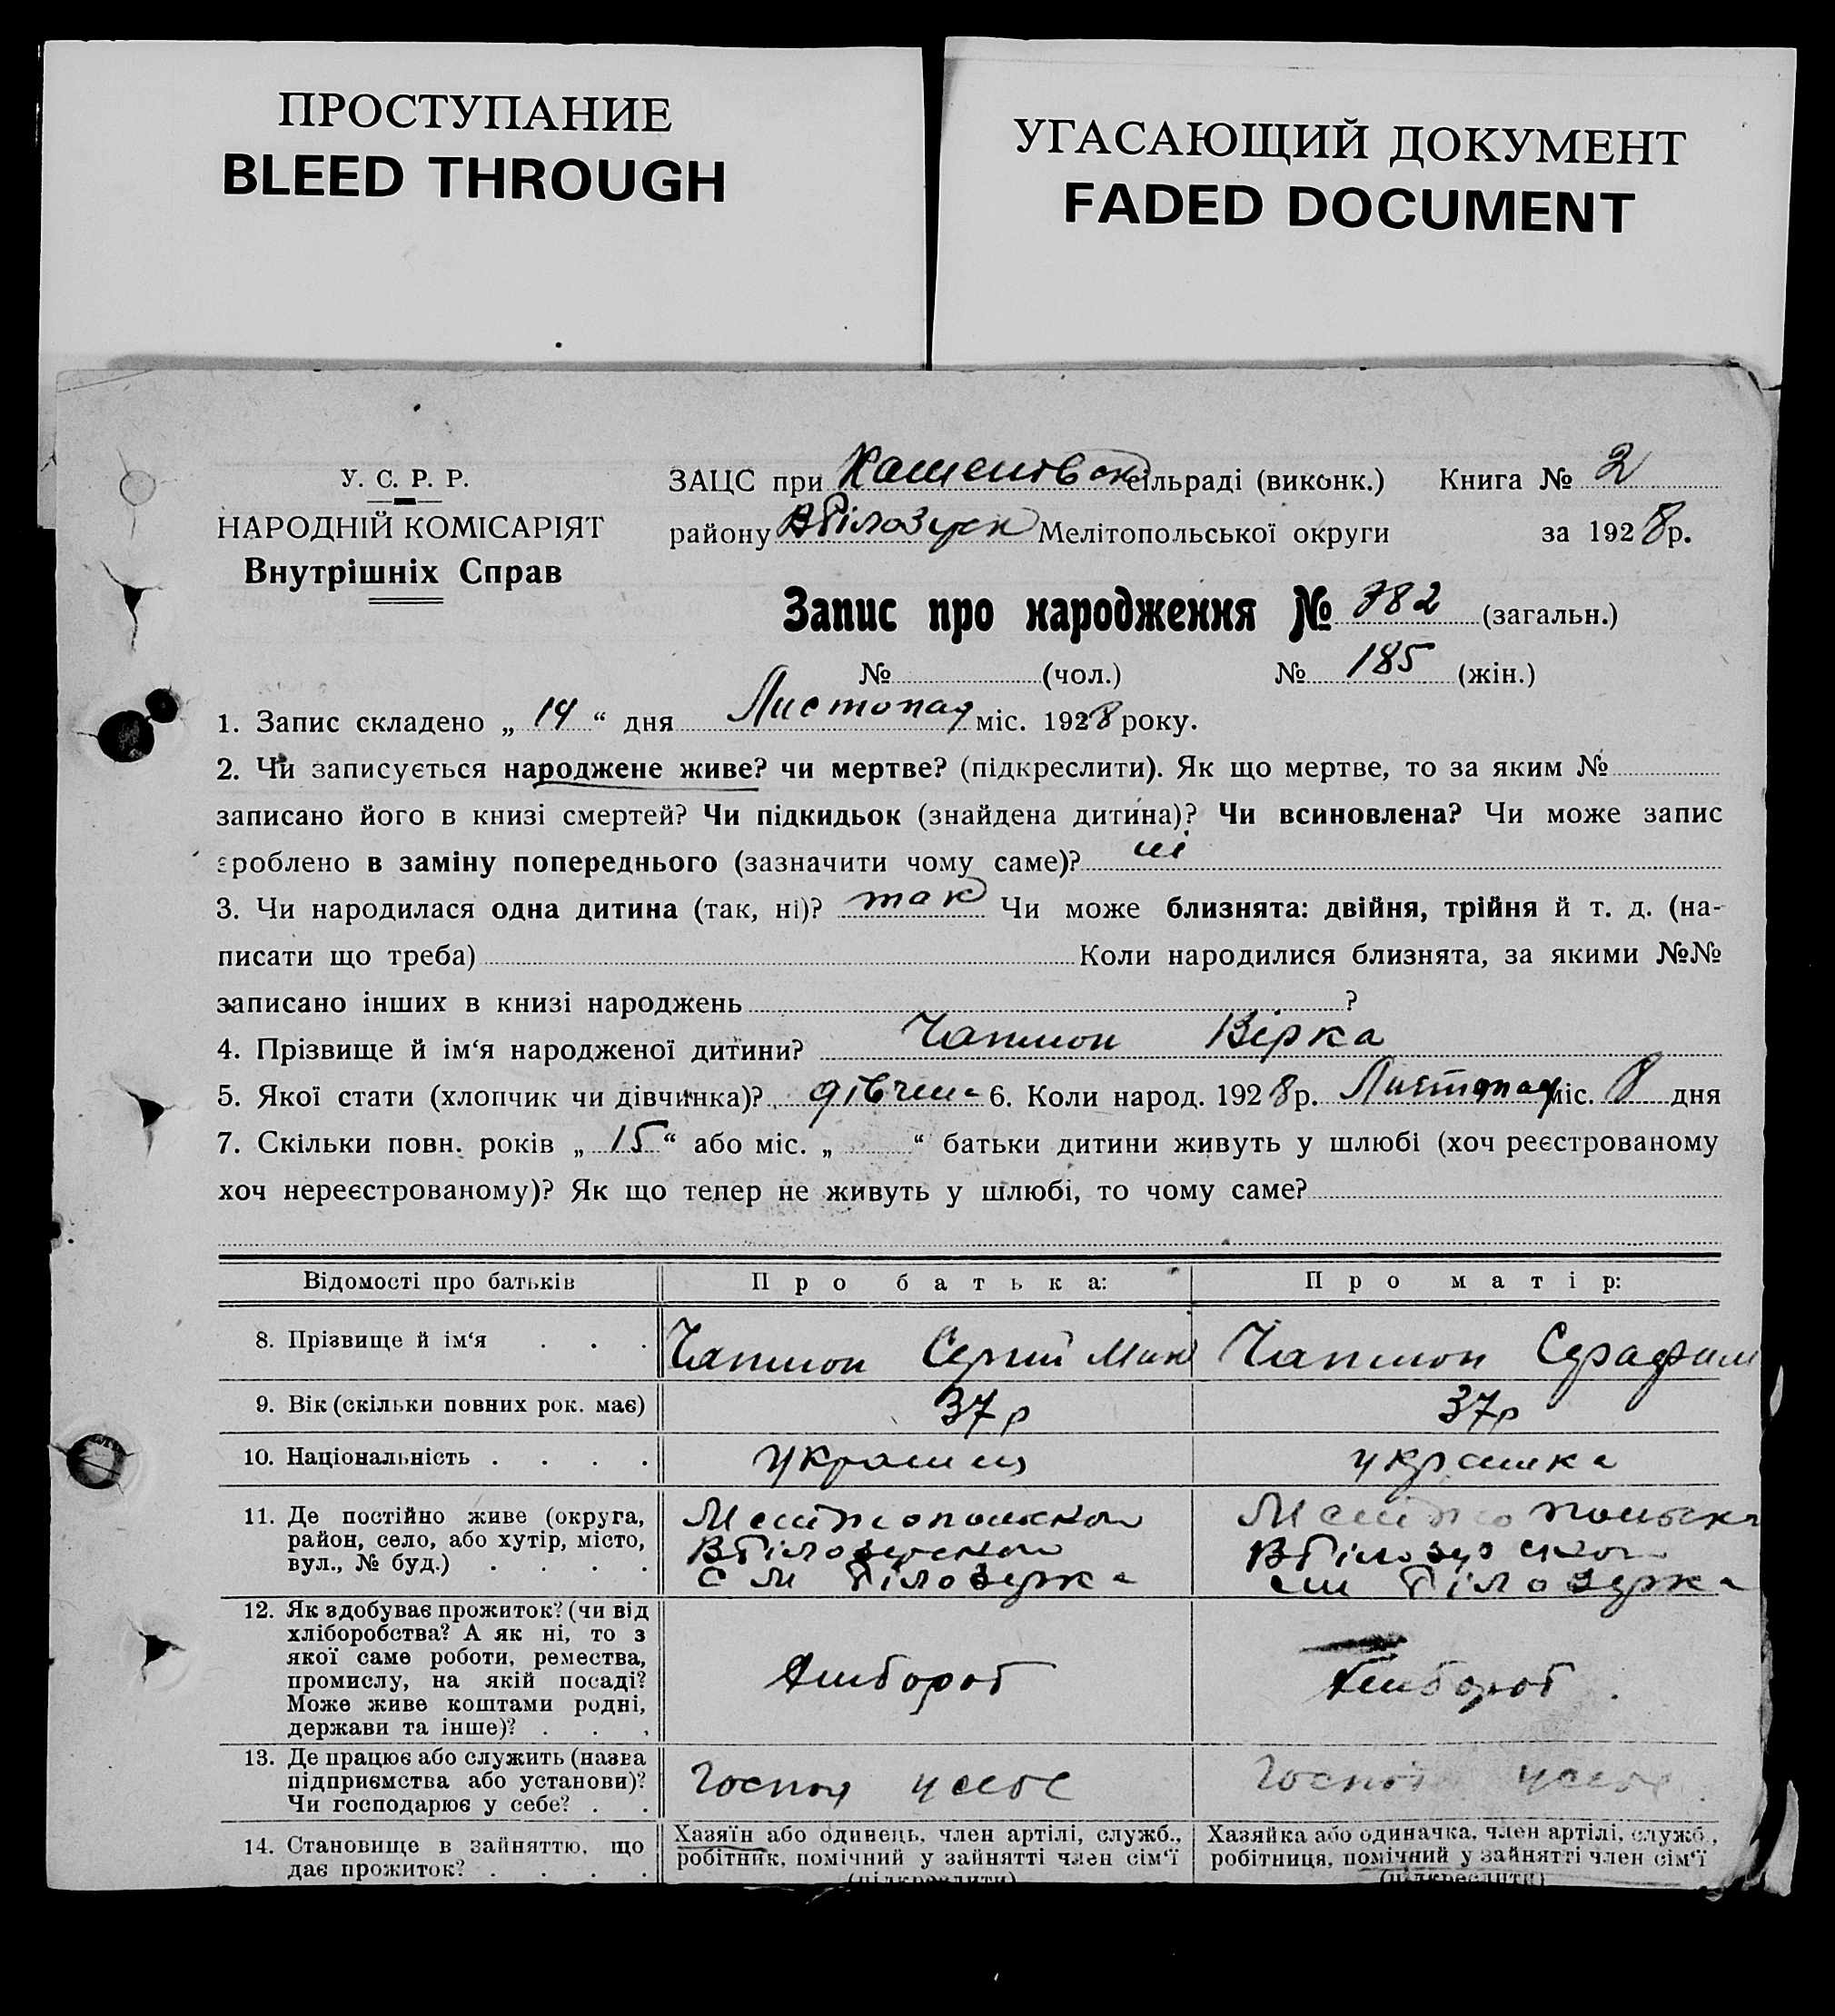 ПРОСТУПАНИЕ
BLEED THROUGH
УГАСАЮЩИЙ ДОКУМЕНТ
FADED DOCUMENT
У. С. Р. Р.
НАРОДНІЙ КОМІСАРІЯТ
Внутрішніх Справ
ЗАЦС при сільраді (виконк.) Книга № 2
району ВБілозерк Мелітопольської округи за 1928 р.
Запис про народження № 382 (загальн.)
№ (чол.) № 185 (жін.)
1. Запис складено „ 14 “ дня Листопад міс. 1928 року.
2. Чи записується народжене живе? чи мертве? (підкреслити). Як що мертве, то за яким №
записано його в книзі смертей? Чи підкидьок (знайдена дитина)? Чи всиновлена? Чи може запис
зроблено в заміну попереднього (зазначити чому саме)? ні
3. Чи народилася одна дитина (так, ні)? так Чи може близнята: двійня, трійня й т. д. (на-
писати що треба) Коли народилися близнята, за якими №№
записано інших в книзі народжень ?
4. Прізвище й ім‘я народженої дитини? Чапион Вірка
5. Якої стати (хлопчик чи дівчинка)? дівчина 6. Коли народ. 1928 р. Листопад міс. 8 дня
7. Скільки повн. років „ 15 “ або міс. „ “ батьки дитини живуть у шлюбі (хоч реєстрованому
хоч нереєстрованому)? Як що тепер не живуть у шлюбі, то чому саме?
Відомості про батьків Про батька: Про матір:
8. Прізвище й ім‘я . . . Чапион Сергій Мик Чапион Серафим
9. Вік (скільки повних рок. має) 37 р 37 р
10. Національність . . . . українец українка
11. Де постійно живе (округа,
район, село, або хутір, місто,
вул., № буд.) . . . .
Мелітопольскои Мелітопольск
ВБілозерскои ВБілозерскои
с м Білозерка см Білозерка
12. Як здобуває прожиток? (чи від
хліборобства? А як ні, то з
якої саме роботи, ремества,
промислу, на якій посаді?
Може живе коштами родні,
держави та інше)? . . .
Хлибороб Хлибороб
13. Де працює або служить (назва
підприємства або установи)?
Чи господарює у себе? . .
Господ у себе Господ у себе
14. Становище в зайняттю, що
дає прожиток? . . . .
Хазяїн або одинець, член артілі, служб.,
робітник, помічний у зайнятті член сім‘ї
(підкреслити)
Хазяйка або одиначка, член артілі, служб.,
робітниця, помічний у зайнятті член сім‘ї
(підкреслити)